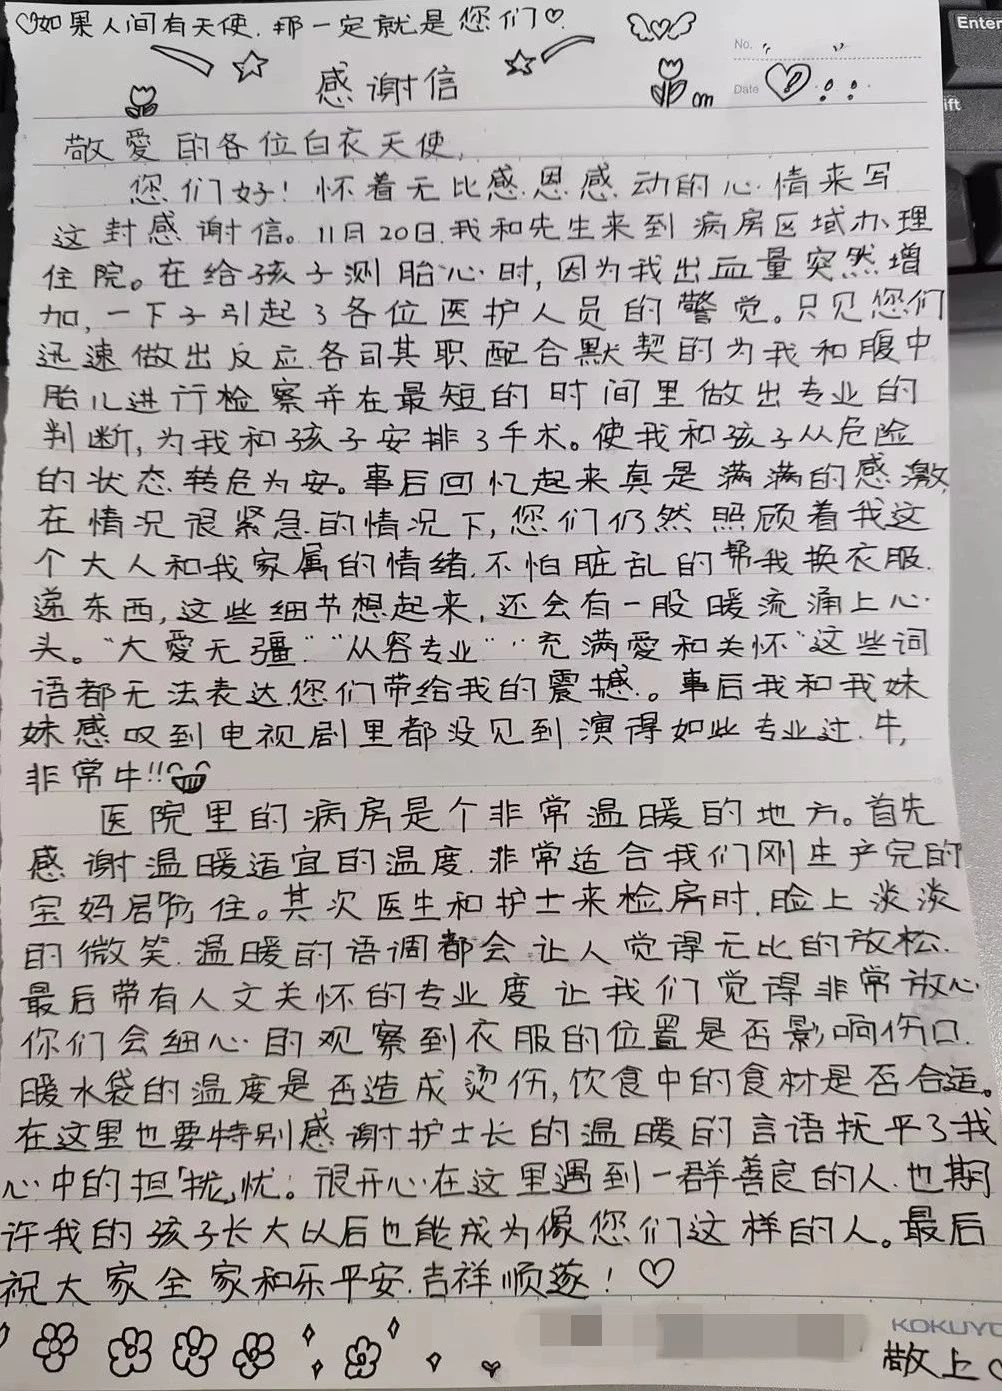 ♡如果人间有天使.那一定就是您们♡.
No.
感谢信
Date
敬爱的各位白衣天使,
您们好!怀着无比感恩感动的心情来写
这封感谢信。11月20日.我和先生来到病房区域办理
住院。在给孩子测胎心时,因为我出血量突然增
加,一下子引起了各位医护人员的警觉。只见您们
迅速做出反应.各司其职配合默契的为我和腹中
胎儿进行检察并在最短的时间里做出专业的
判断,为我和孩子安排了手术。使我和孩子从危险
的状态转危为安。事后回忆起来真是满满的感激,
在情况很紧急的情况下,您们仍然照顾着我这
个大人和我家属的情绪.不怕脏乱的帮我换衣服.
递东西,这些细节想起来,还会有一股暖流涌上心
头。"大爱无疆""从容专业""充满爱和关怀"这些词
语都无法表达您们带给我的震撼。事后我和我妹
妹感叹到电视剧里都没见到演得如此专业过.牛,
非常牛!!
医院里的病房是个非常温暖的地方。首先
感谢温暖适宜的温度.非常适合我们刚生产完的
宝妈居住。其次医生和护士来检房时.脸上淡淡
的微笑.温暖的语调都会让人觉得无比的放松.
最后带有人文关怀的专业度让我们觉得非常放心.
你们会细心的观察到衣服的位置是否影响伤口.
暖水袋的温度是否造成烫伤,饮食中的食材是否合适。
在这里也要特别感谢护士长的温暖的言语抚平了我
心中的担忧。很开心在这里遇到一群善良的人.也期
许我的孩子长大以后也能成为像您们这样的人。最后
祝大家全家和乐平安.吉祥顺遂!♡
KOKUYO
敬上♡
Enter
ift